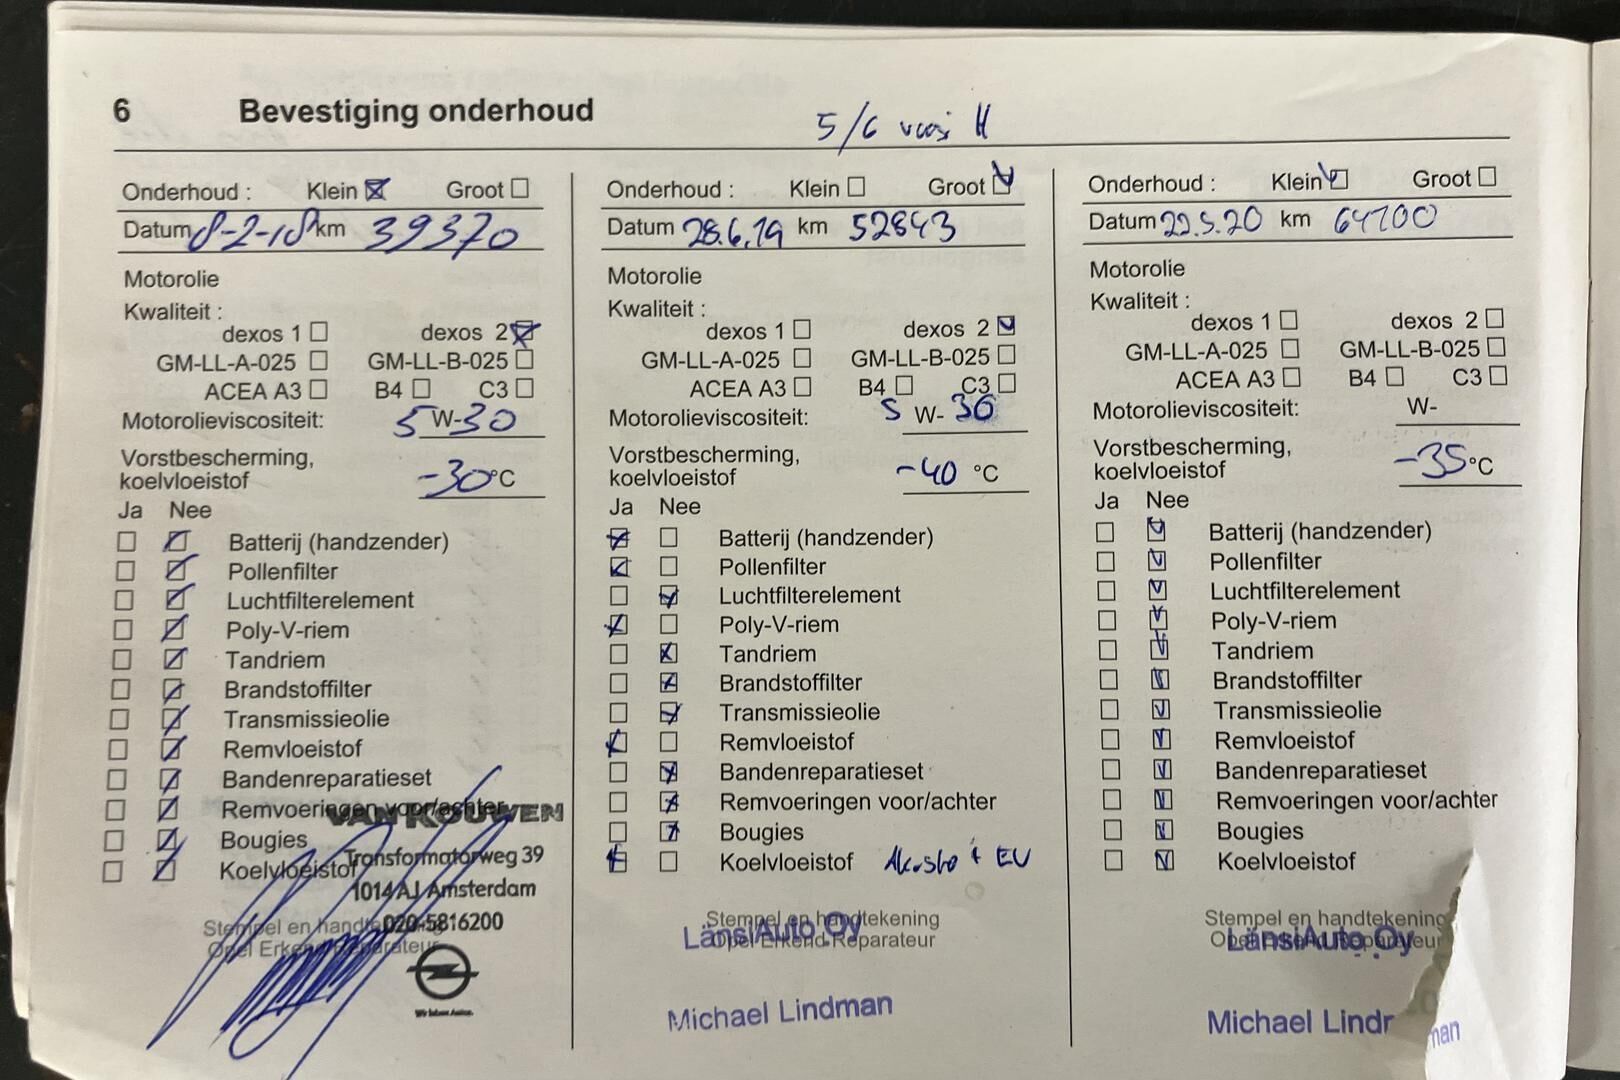 6 Bevestiging onderhoud
5/6
Onderhoud : Klein Groot
Datum 8-2-18 km 39370
Motorolie
Kwaliteit :
dexos 1 dexos 2
GM-LL-A-025 GM-LL-B-025
ACEA A3 B4 C3
Motorolieviscositeit: 5 W-30
Vorstbescherming,
koelvloeistof -30°C
Ja Nee
Batterij (handzender)
Pollenfilter
Luchtfilterelement
Poly-V-riem
Tandriem
Brandstoffilter
Transmissieolie
Remvloeistof
Bandenreparatieset
Remvoeringen voor/achter
VAN KOUWEN
Bougies
Transformatorweg 39
Koelvloeistof
1014 AJ Amsterdam
020-5816200
Stempel en
Opel
Wir leben Autos.
Onderhoud : Klein Groot
Datum 28.6.19 km 52843
Motorolie
Kwaliteit :
dexos 1 dexos 2
GM-LL-A-025 GM-LL-B-025
ACEA A3 B4 C3
Motorolieviscositeit: 5 W- 30
Vorstbescherming,
koelvloeistof -40 °C
Ja Nee
Batterij (handzender)
Pollenfilter
Luchtfilterelement
Poly-V-riem
Tandriem
Brandstoffilter
Transmissieolie
Remvloeistof
Bandenreparatieset
Remvoeringen voor/achter
Bougies
Koelvloeistof
Stempel en handtekening
LänsiAuto Oy
Opel Erkend Reparateur
Michael Lindman
Onderhoud : Klein Groot
Datum 22.5.20 km 64700
Motorolie
Kwaliteit :
dexos 1 dexos 2
GM-LL-A-025 GM-LL-B-025
ACEA A3 B4 C3
Motorolieviscositeit: W-
Vorstbescherming,
koelvloeistof -35°C
Ja Nee
Batterij (handzender)
Pollenfilter
Luchtfilterelement
Poly-V-riem
Tandriem
Brandstoffilter
Transmissieolie
Remvloeistof
Bandenreparatieset
Remvoeringen voor/achter
Bougies
Koelvloeistof
Stempel en handtekening
LänsiAuto Oy
Michael Lindman